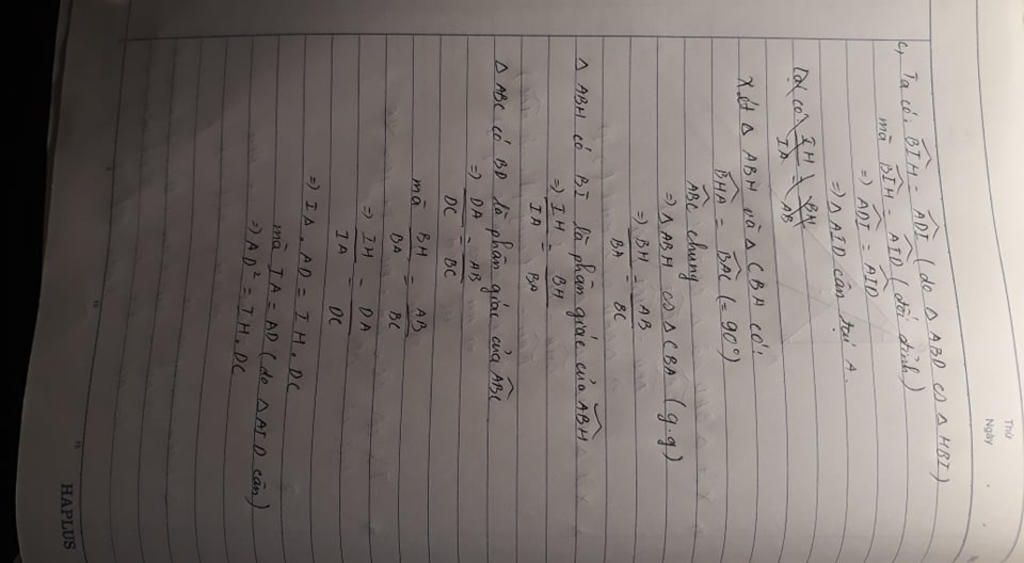 Thứ
Ngày
c, Ta có: BIH = ADI (do Δ ABD ∽ Δ HBI)
mà BIH = AID (đối đỉnh)
=) ADI = AID
=) Δ AID cân tại A.
Lại có IH/IA = BH/AB
Xét Δ ABH và Δ CBA có:
BHA = BAC (= 90°)
ABC chung
=) Δ ABH ∽ Δ CBA (g.g)
=) BH/BA = AB/BC
Δ ABH có BI là phân giác của ABH
=) IH/IA = BH/BA
Δ ABC có BD là phân giác của ABC
=) DA/DC = AB/BC
mà BH/BA = AB/BC
=) IH/IA = DA/DC
=) IA . AD = IH . DC
mà IA = AD (do Δ AID cân)
=) AD² = IH . DC
HAPLUS